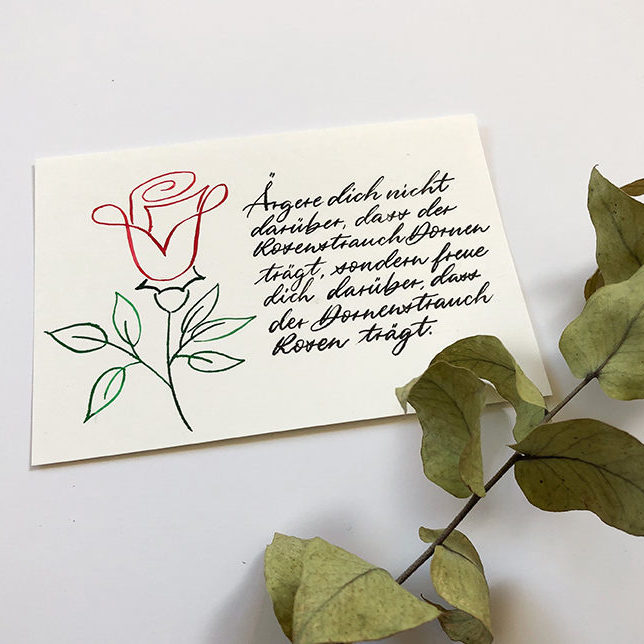 Ärgere dich nicht
darüber, dass der
Rosenstrauch Dornen
trägt, sondern freue
dich darüber, dass
der Dornenstrauch
Rosen trägt.